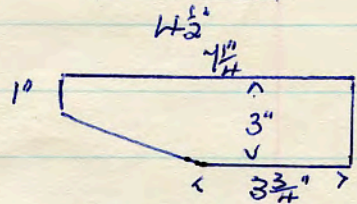 4 1/2"
7 1/4"
1"
3"
3 3/4"